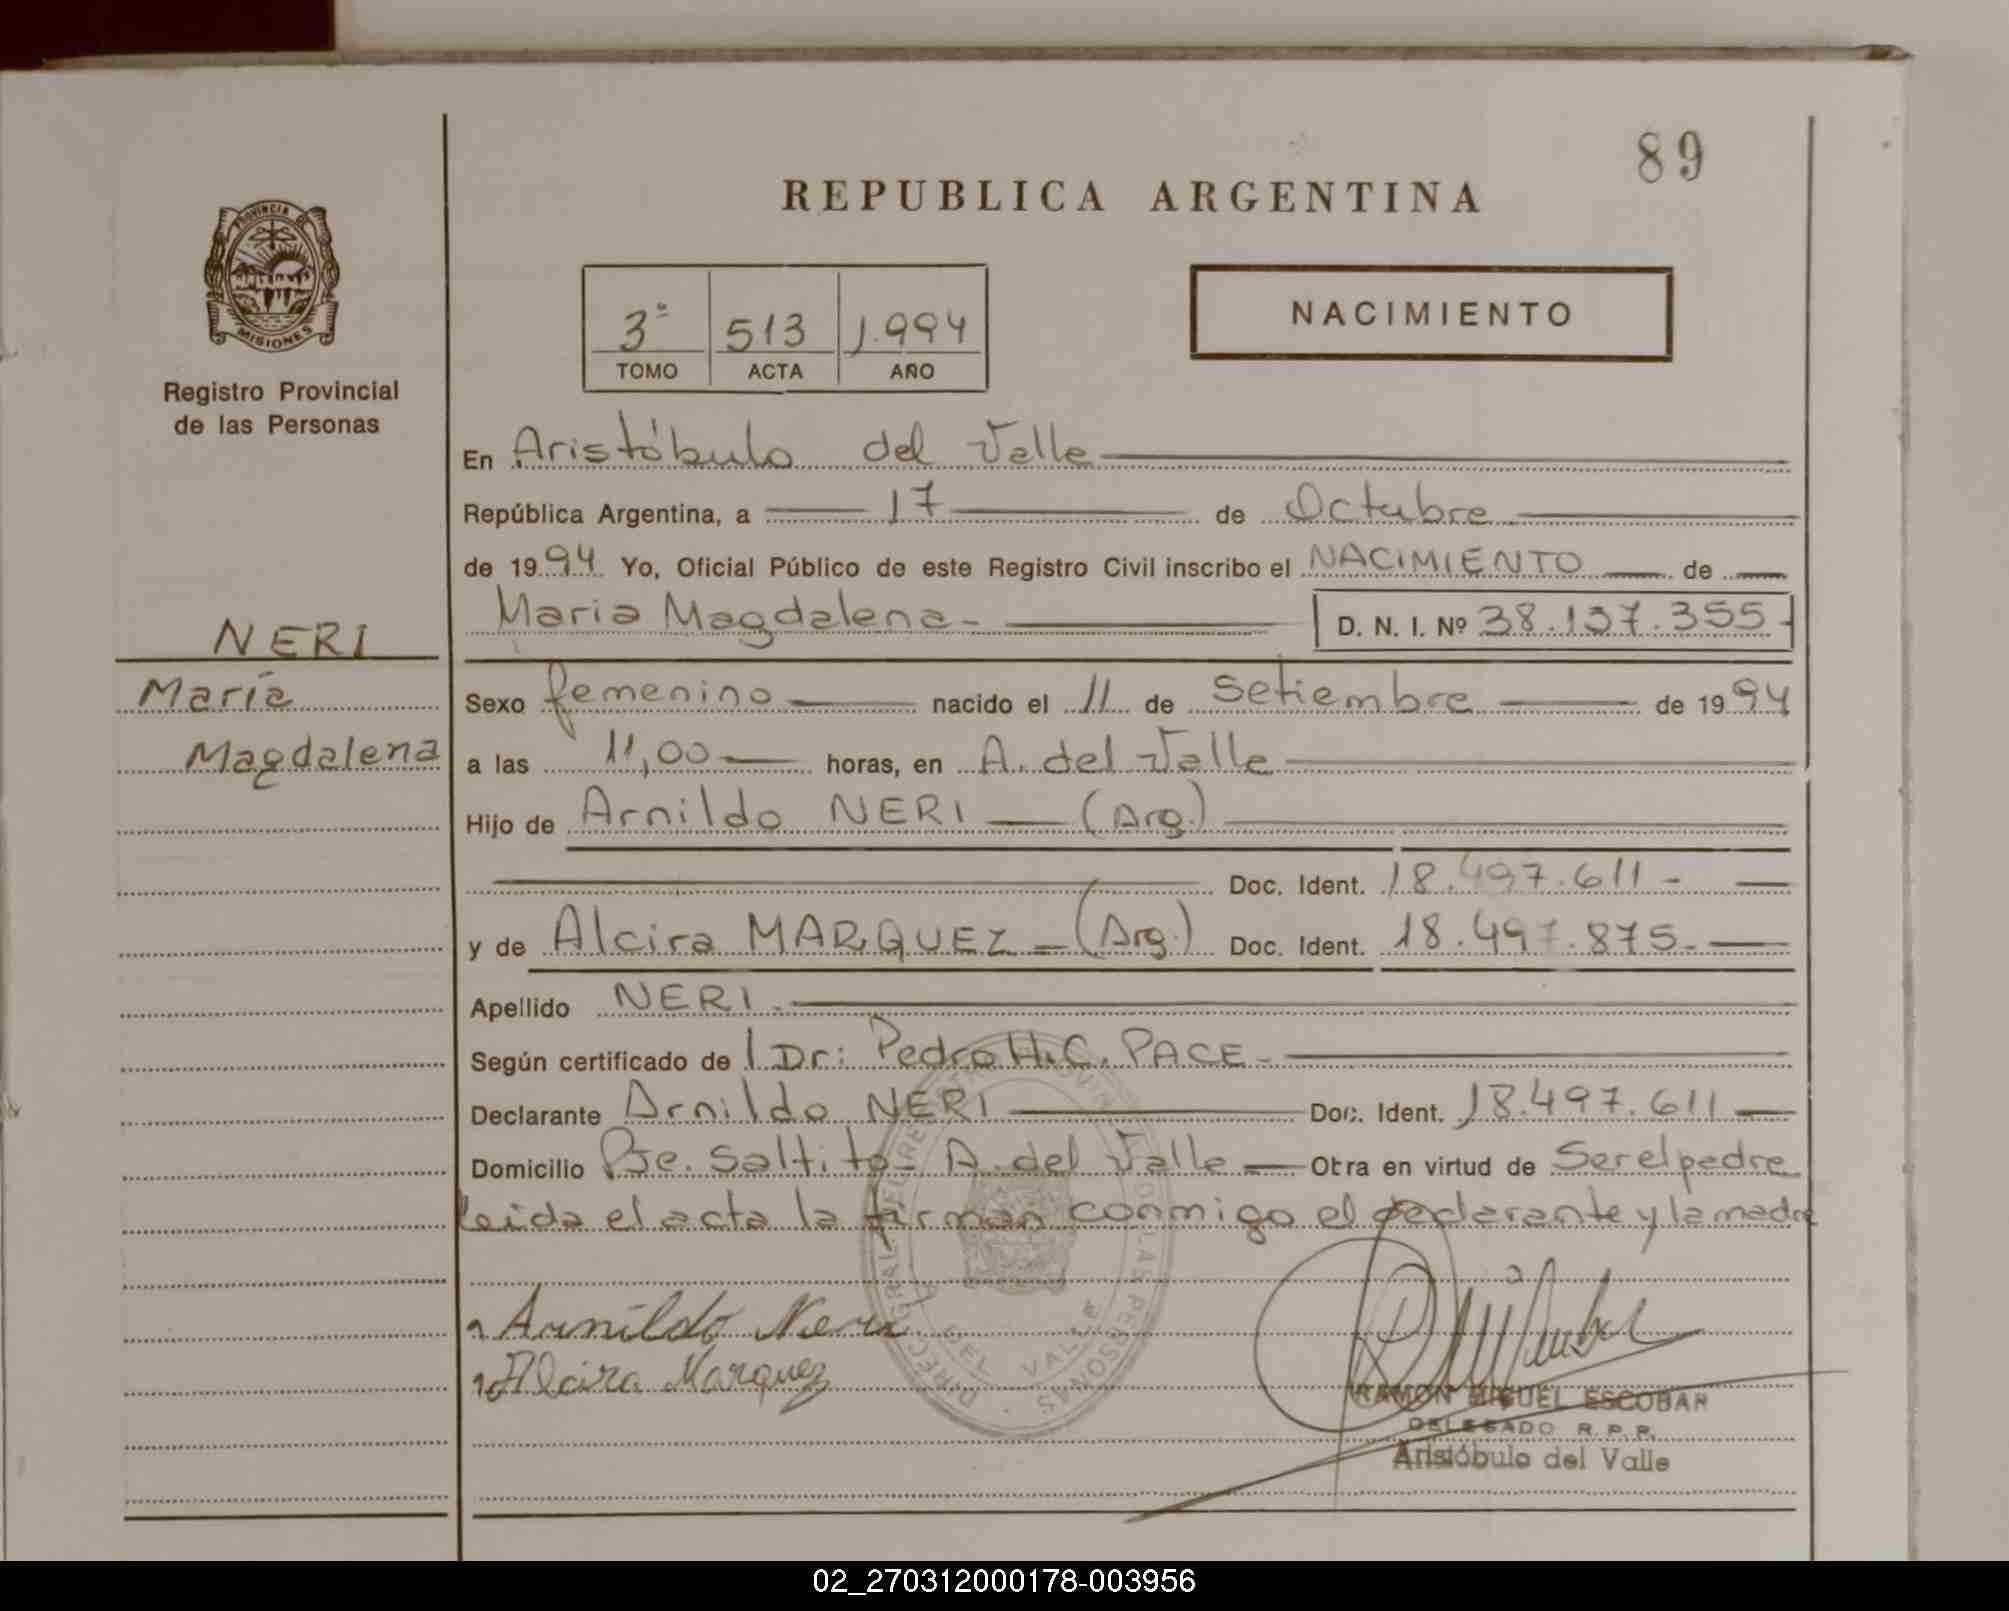 89
REPUBLICA ARGENTINA
PROVINCIA DE
MISIONES
Registro Provincial
de las Personas
3º 513 1.994
TOMO ACTA AÑO
NACIMIENTO
En Aristóbulo del Valle
República Argentina, a 17 de Octubre
de 1994 Yo, Oficial Público de este Registro Civil inscribo el NACIMIENTO de
Maria Magdalena- D. N. I. Nº 38.137.355-
NERI
María
Magdalena
Sexo femenino nacido el 11 de Setiembre de 1994
a las 11,00 horas, en A. del Valle
Hijo de Arnildo NERI (Arg.)
Doc. Ident. 18.497.611-
y de Alcira MARQUEZ (Arg.) Doc. Ident. 18.497.875-
Apellido NERI.
Según certificado de Dr: Pedro H.C. PACE-
Declarante Arnildo NERI Doc. Ident. 18.497.611
Domicilio Pje. Saltito- A. del Valle Otra en virtud de Ser el padre
leida el acta la firman conmigo el declarante y la madre
Arnildo Neri
Alcira Marquez
RAMON MIGUEL ESCOBAR
DELEGADO R.P.P.
Aristóbulo del Valle
02_270312000178-003956